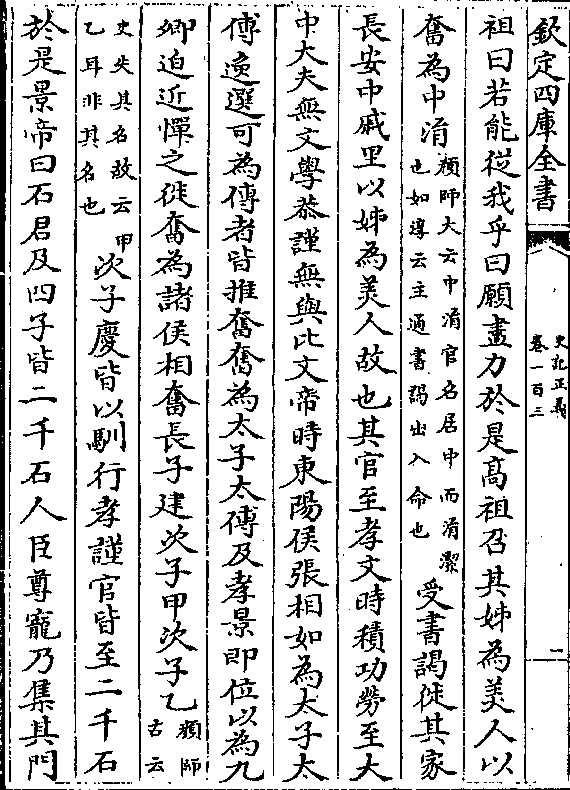 欽定四庫全書
史記正義
卷一百三
二
祖曰若能從我乎曰願盡力於是髙祖召其姊為美人以
奮為中涓
顔師大云中涓官名居中而涓潔
也如淳云主通書謁出入命也
受書謁徙其家
長安中戚里以姊為美人故也其官至孝文時積功勞至大
中大夫無文學恭謹無與比文帝時東陽侯張相如為太子太
傅免選可為傅者皆推奮奮為太子太傅及孝景即位以為九
卿迫近憚之徙奮為諸侯相奮長子建次子甲次子乙
顔師
古云
史失其名故云甲
乙耳非其名也
次子慶皆以馴行孝謹官皆至二千石
於是景帝曰石君及四子皆二千石人臣尊寵乃集其門